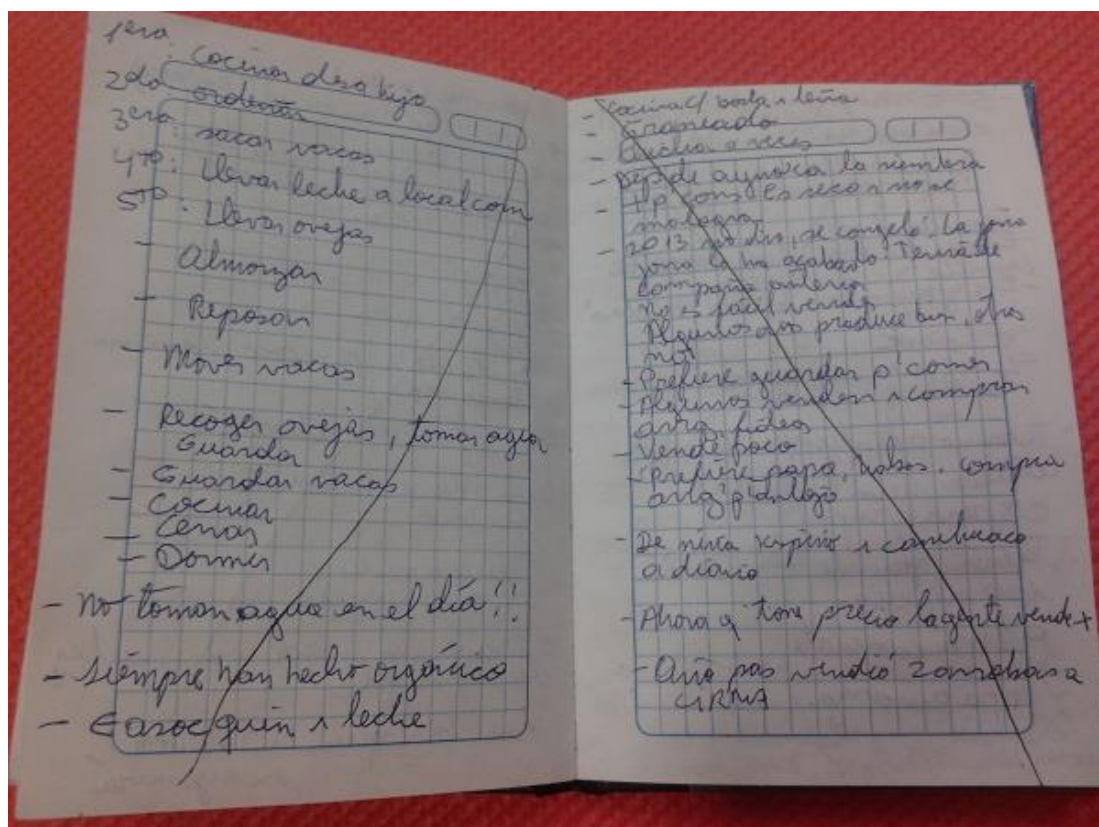 1era : Cocinar desayuno
2do ordeñar
3ero : sacar vacas
4to : llevar leche a local com
5to : Llevar ovejas
- Almorzar
- Reposar
- Mover vacas
- Recoger ovejas, toman agua
Guardar
- Guardar vacas
- Cocinar
- Cenar
- Dormir
- No toman agua en el día!!
- Siempre han hecho orgánico
- ∈ asoc quin y leche
- Cocina c/ bosta y leña
- Graneado
- a veces
- Dep de aynoca la siembra
- tp cons es seco y no se
malogra
- 2013 no dio, se congeló. La
la ha acabado. Tenía de
campaña anterior
no es fácil vender
Algunos años produce bien, otros
no
- Prefiere guardar p' comer
- Algunos venden y compran
arroz, fideos
- Vende poco
- Prefiere papa, habas. compra
arroz p'
- De niña kispiño y
a diario
- Ahora q' tone precio la gente vende +
- Año pas vendió 2 arrobas a
CIRNA